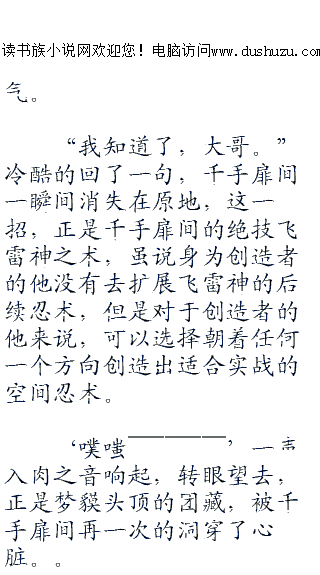 读书族小说网欢迎您！电脑访问www.dushuzu.com
气。
“我知道了，大哥。”
冷酷的回了一句，千手扉间
一瞬间消失在原地，这一
招，正是千手扉间的绝技飞
雷神之术，虽说身为创造者
的他没有去扩展飞雷神的后
续忍术，但是对于创造者的
他来说，可以选择朝着任何
一个方向创造出适合实战的
空间忍术。
‘噗嗤————，一声
入肉之音响起，转眼望去，
正是梦貘头顶的团藏，被千
手扉间再一次的洞穿了心
脏。。